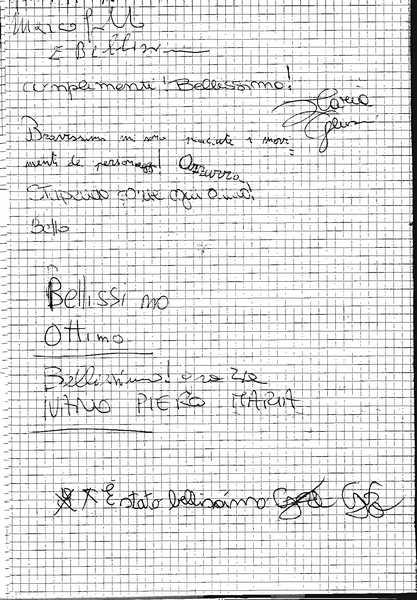 Marco
complimenti! Bellissimo!
Bravissimi mi sono piaciute i movi=
menti dei personaggi! Azzurra
Stupendo come ogni anno!
Bello
Bellissimo
Ottimo
Bellissimo! grazie
IVANO PIERO MARIA
È stato bellissimo